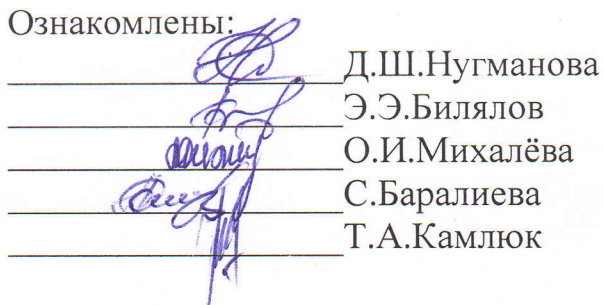 Ознакомлены:
Д.Ш.Нугманова
Э.Э.Билялов
О.И.Михалёва
С.Баралиева
Т.А.Камлюк